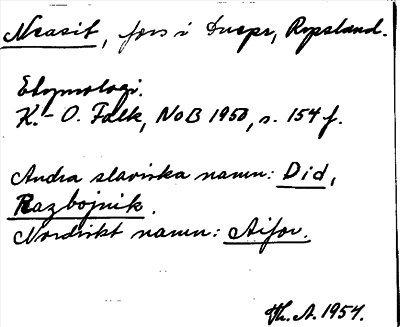 Neasit, fors i Dnepr, Ryssland.
Etymologi.
K.-O. Falk, NoB 1950, s. 154 f.
Andra slaviska namn: Did,
Razbojnik.
Nordiskt namn: Aifor.
Th. A. 1954.